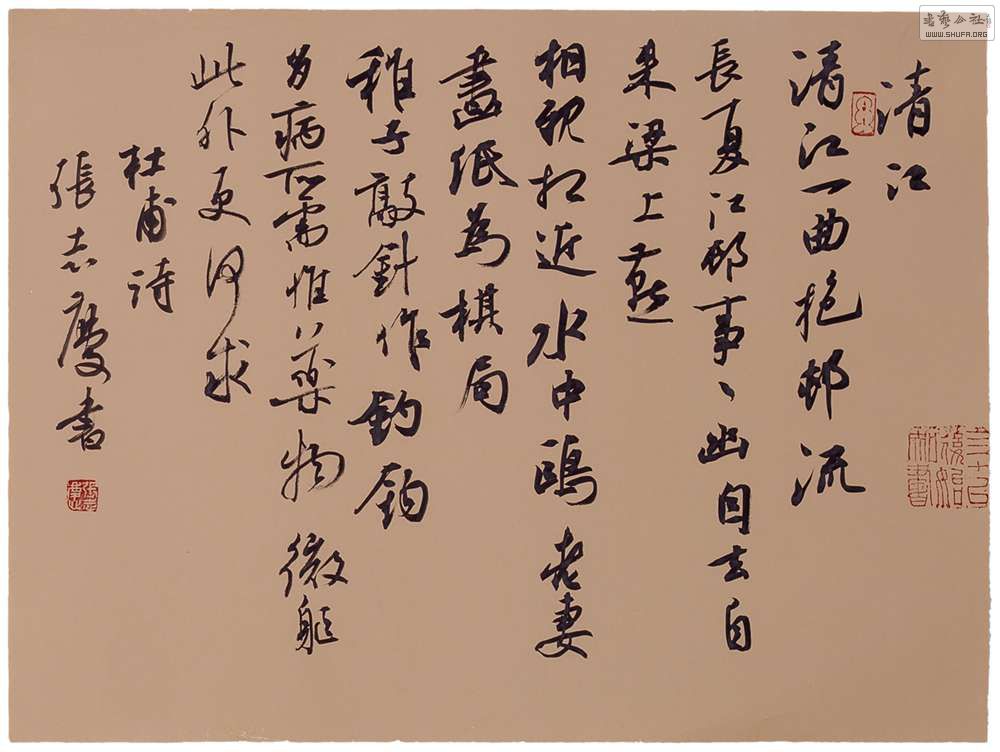 清江
清江一曲抱邨流
長夏江邨事〻幽自去自
来梁上燕
相親相近水中鷗老妻
畫紙為棋局
稚子敲針作釣鈎
多病所需惟藥物微軀
此外更何求
杜甫詩
張志慶書
書藝公社
WWW.SHUFA.ORG